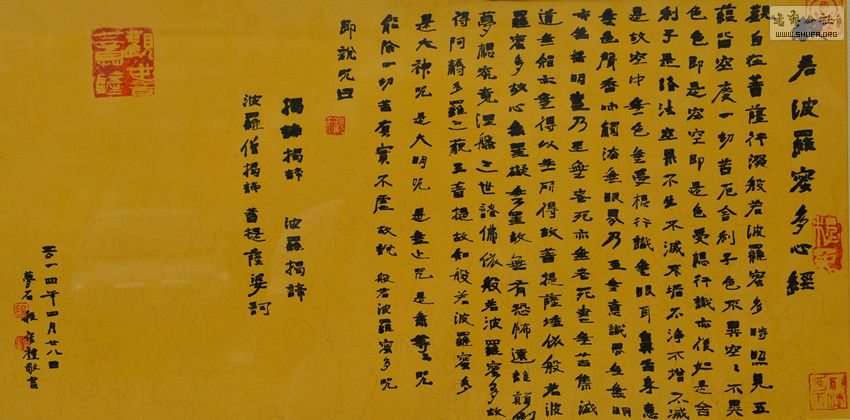 若波羅蜜多心經
觀自在菩薩行深般若波羅蜜多時照見五
蘊皆空度一切苦厄舍利子色不異空空不異
色色即是空空即是色受想行識亦復如是舍
利子是諸法空相不生不滅不垢不淨不增不減
是故空中無色無受想行識無眼耳鼻舌身意
無色聲香味觸法無眼界乃至無意識界無無明
亦無無明盡乃至無老死亦無老死盡無苦集滅
道無智亦無得以無所得故菩提薩埵依般若波
羅蜜多故心無罣礙無罣故無有恐怖遠離顛倒
夢想究竟涅槃三世諸佛依般若波羅蜜多故
得阿耨多羅三藐三菩提故知般若波羅蜜多
是大神咒是大明咒是無上咒是無等等咒
能除一切苦真實不虛故說般若波羅蜜多咒
即說咒曰
揭諦揭諦 波羅揭諦
波羅僧揭諦菩提薩婆訶
二〇一四年四月廿八日
夢石 禮敬書
書法公社
WWW.SHUFA.ORG